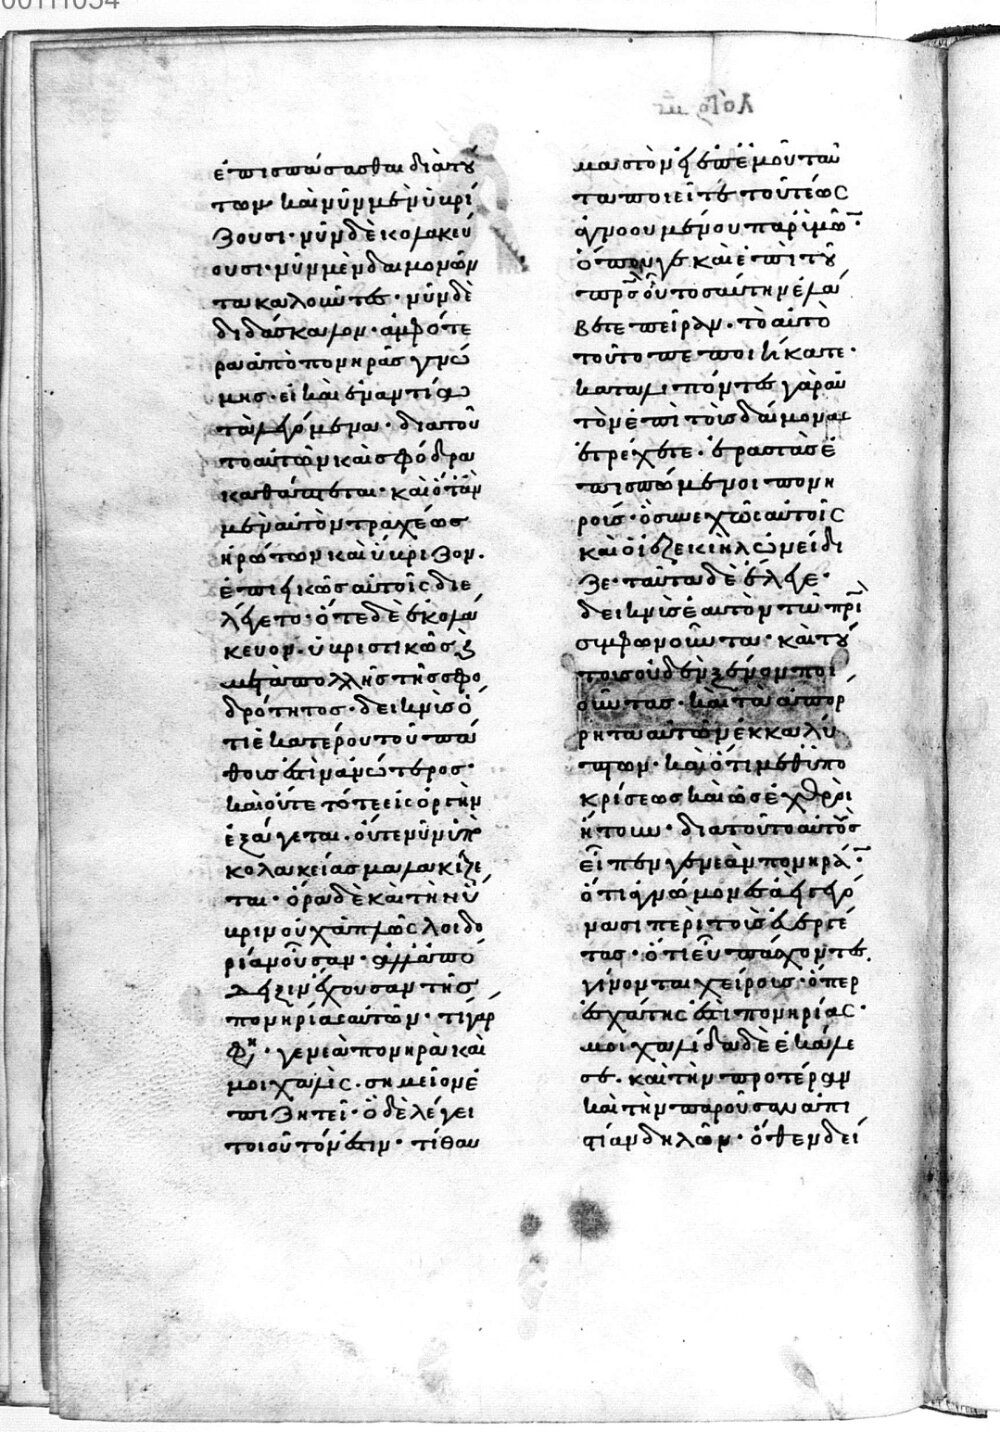 ἐπισπάσασθαι διὰ τού
των· καὶ νῦν μὲν ὑβρί
ζουσι· νῦν δὲ κολακεύ
ουσι· νῦν μὲν δαιμονῶν
τα καλοῦντες· νῦν δὲ
διδάσκαλον· ἀμφότε
ρα ἀπὸ πονηρᾶς γνώ
μης· εἰ καὶ ἐναντία
τὰ λεγόμενα· διὰ τοῦ
το αὐτῶν καὶ σφόδρα
καθάπτεται· καὶ ὅταν
μὲν αὐτὸν τραχέως
ἠρώτων καὶ ὕβριζον·
ἐπιεικῶς αὐτοῖς διε
λέγετο· ὅτε δὲ ἐκολά
κευον· ὑβριστικῶς καὶ
μετὰ πολλῆς τῆς σφο
δρότητος· δεικνὺς ὅ
τι ἑκατέρου τοῦ πά
θους ἐστὶν ἀνώτερος·
καὶ οὔτε τότε εἰς ὀργὴν
ἐξάγεται· οὔτε νῦν ὑπὸ
κολακείας μαλακίζε
ται· ὅρα δὲ καὶ τὴν ὕ
βριν οὐχ ἁπλῶς λοιδο
ρίαν οὖσαν· ἀλλὰ ἀπό
δειξιν ἔχουσαν τῆς
πονηρίας αὐτῶν· τί γάρ
φη· γενεὰ πονηρὰ καὶ
μοιχαλὶς· σημεῖον ἐ
πιζητεῖ· ὃ δὲ λέγει
τοιοῦτόν ἐστιν· τί θαυ
μαστὸν εἰ ἐπ' ἐμοῦ ταῦ
τα ποιεῖτε τοῦ τέως
ἀγνοουμένου παρ' ὑμῶν·
ὅπου γε καὶ ἐπὶ τοῦ
πρς οὗ τοσαύτην ἐλά
βετε πεῖραν· τὸ αὐτὸ
τοῦτο πεποιήκατε·
καταλιπόντες γὰρ αὐ
τὸν ἐπὶ τοὺς δαίμονας
ἐτρέχετε· ἐραστὰς ἐ
πισπώμενοι πονη
ρούς· ὃ συνεχῶς αὐτοῖς
καὶ ὁ ἰεζεκιὴλ ὠνείδι
ζε· ταῦτα δὲ ἔλεγε·
δεικνὺς ἑαυτὸν τῶ πρὶ
συμφωνοῦντα· καὶ τού
τους οὐδὲν ξένον ποι
οῦντας· καὶ τὰ ἀπόρ
ρητα αὐτῶν ἐκκαλύ
πτων· καὶ ὅτι μεθ' ὑπο
κρίσεως καὶ ὡς ἐχθροὶ
ἤτουν· διὰ τοῦτο αὐτοὺς
εἶπεν γενεὰν πονηράν·
ὅτι ἀγνώμονες ἀεὶ γεγό
νασι περὶ τοὺς εὐεργέ
τας· ὅτι εὖ πάσχοντες
γίνονται χείρους· ὅπερ
ἐσχάτης ἐστὶ πονηρίας·
μοιχαλίδα δὲ ἐκάλε
σε· καὶ τὴν προτέραν
καὶ τὴν παροῦσαν ἀπι
στίαν δηλῶν· ὅθεν δεί